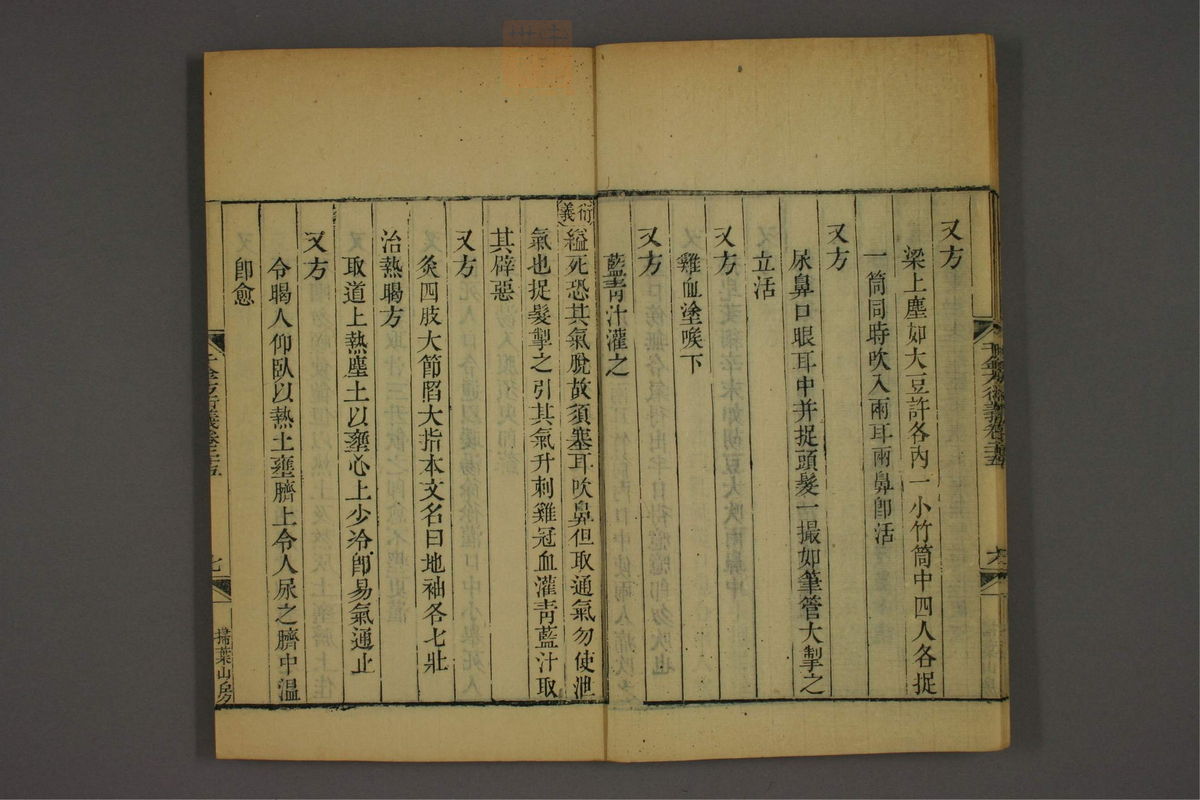 又方
梁上塵如大豆許各內一小竹筒中四人各捉
一筒同時吹入兩耳兩鼻卽活
又方
尿鼻口眼耳中并捉頭髮一撮如筆管大掣之
立活
又方
雞血塗喉下
又方
藍靑汁灌之
衍義
縊死恐其氣脫故須塞耳吹鼻但取通氣勿使泄
氣也捉髮掣之引其氣升刺雞冠血灌靑藍汁取
其辟惡
又方
灸四肢大節䧟大指本文名曰地袖各七壯
治熱暍方
取道上熱塵土以壅心上少冷卽易氣通止
又方
令暍人仰臥以熱土壅臍上令人尿之臍中溫
卽愈
千金方衍義卷二十五
七
掃葉山房